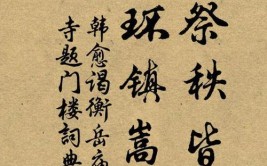 祭秩皆
环镇嵩
韩愈谒衡岳庙
寺题门楼詞典